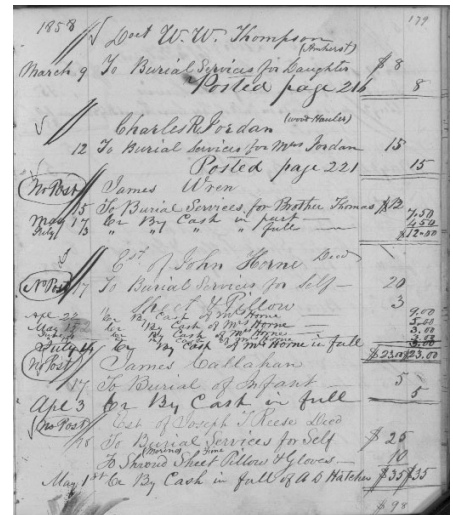 179
1858
Doct W. W. Thompson
(Amherst)
March 9 To Burial Services for Daughter $8
Posted page 216 8
Charles R Jordan
(wood Hauler)
12 To Burial Services for Mrs Jordan 15
Posted page 221 15
No Post James Wren
15 To Burial Services for Brother Thomas $12
May 17 Cr By Cash in part — 7.50
July 13 " " " " full — 4.50
$12.00
Est of John Horne Decd
No Post 17 To Burial Services for Self — 20
Sheet & Pillow 3
Cr By Cash of Mrs Horne 9.00
May Cr By Cash of Mrs Horne — 5.00
Cr By Cash of Mrs Horne 3.00
July Cr By Cash of Mrs Horne in full
$23.00 $23.00
No Post James Callahan
17 To Burial of Infant — 5
Apl 3 Cr By Cash in full 5
No Post Est of Joseph T Reese Decd
18 To Burial Services for Self $25
(Merino) fine
To Shroud Sheet Pillow & Gloves — 10
May 1st Cr By Cash in full of A D Hatcher $35 $35
$98